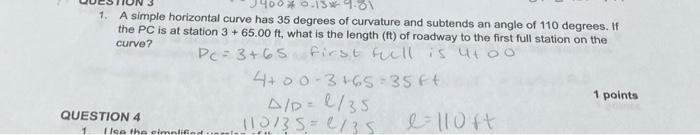 QUESTION 3
√400 * 0.15 * 9.81
1. A simple horizontal curve has 35 degrees of curvature and subtends an angle of 110 degrees. If
the PC is at station 3 + 65.00 ft, what is the length (ft) of roadway to the first full station on the
curve?
PC = 3+65 first full is 4+00
4+00-3+65=35ft
1 points
Δ/D = l/35
QUESTION 4
110/35 = l/35 l=110ft
1. Use the simplified